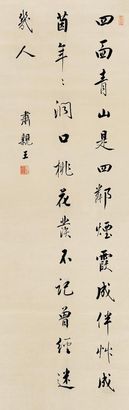 四面青山是四鄰煙霞成伴艸成
茵年〻洞口桃花發不記曾經迷
幾人
肅親王